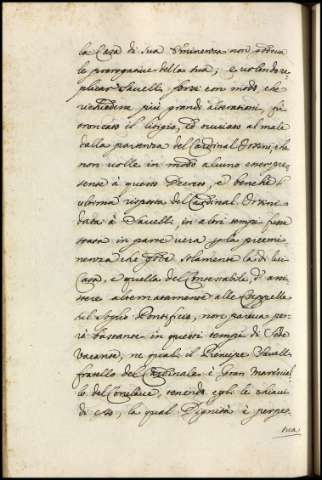 la Casa di Sua Eminenza non aveva
le prerogative della sua; e volendo re,
plicar Savelli forsi con modo, che
richiedeva più grandi alterationi, fù
troncato il litigio, ed ovviato al male
dalla partenza del Cardinal Orsini, che
non volle in modo alcuno esser pre,
sente à questo Decreto, e benche l'
ultima risposta del Cardinal Orsini
data à Savelli, in altri tempi fusse
stata in parte vera per la preemi,
nenza che ebbe solamente la di lui
Casa, e quella del Contestabile, d'assi,
stere alternatamente alle Cappelle
del Soglio Pontificio, non pareva pe,
rò bastante in questi tempi di Sede
vacante, ne quali il Principe Savelli
fratello del Cardinale è Gran Marescial,
lo del Conclave, tenendo egli le chiavi
di esso, la qual Dignità è perpe,
tua